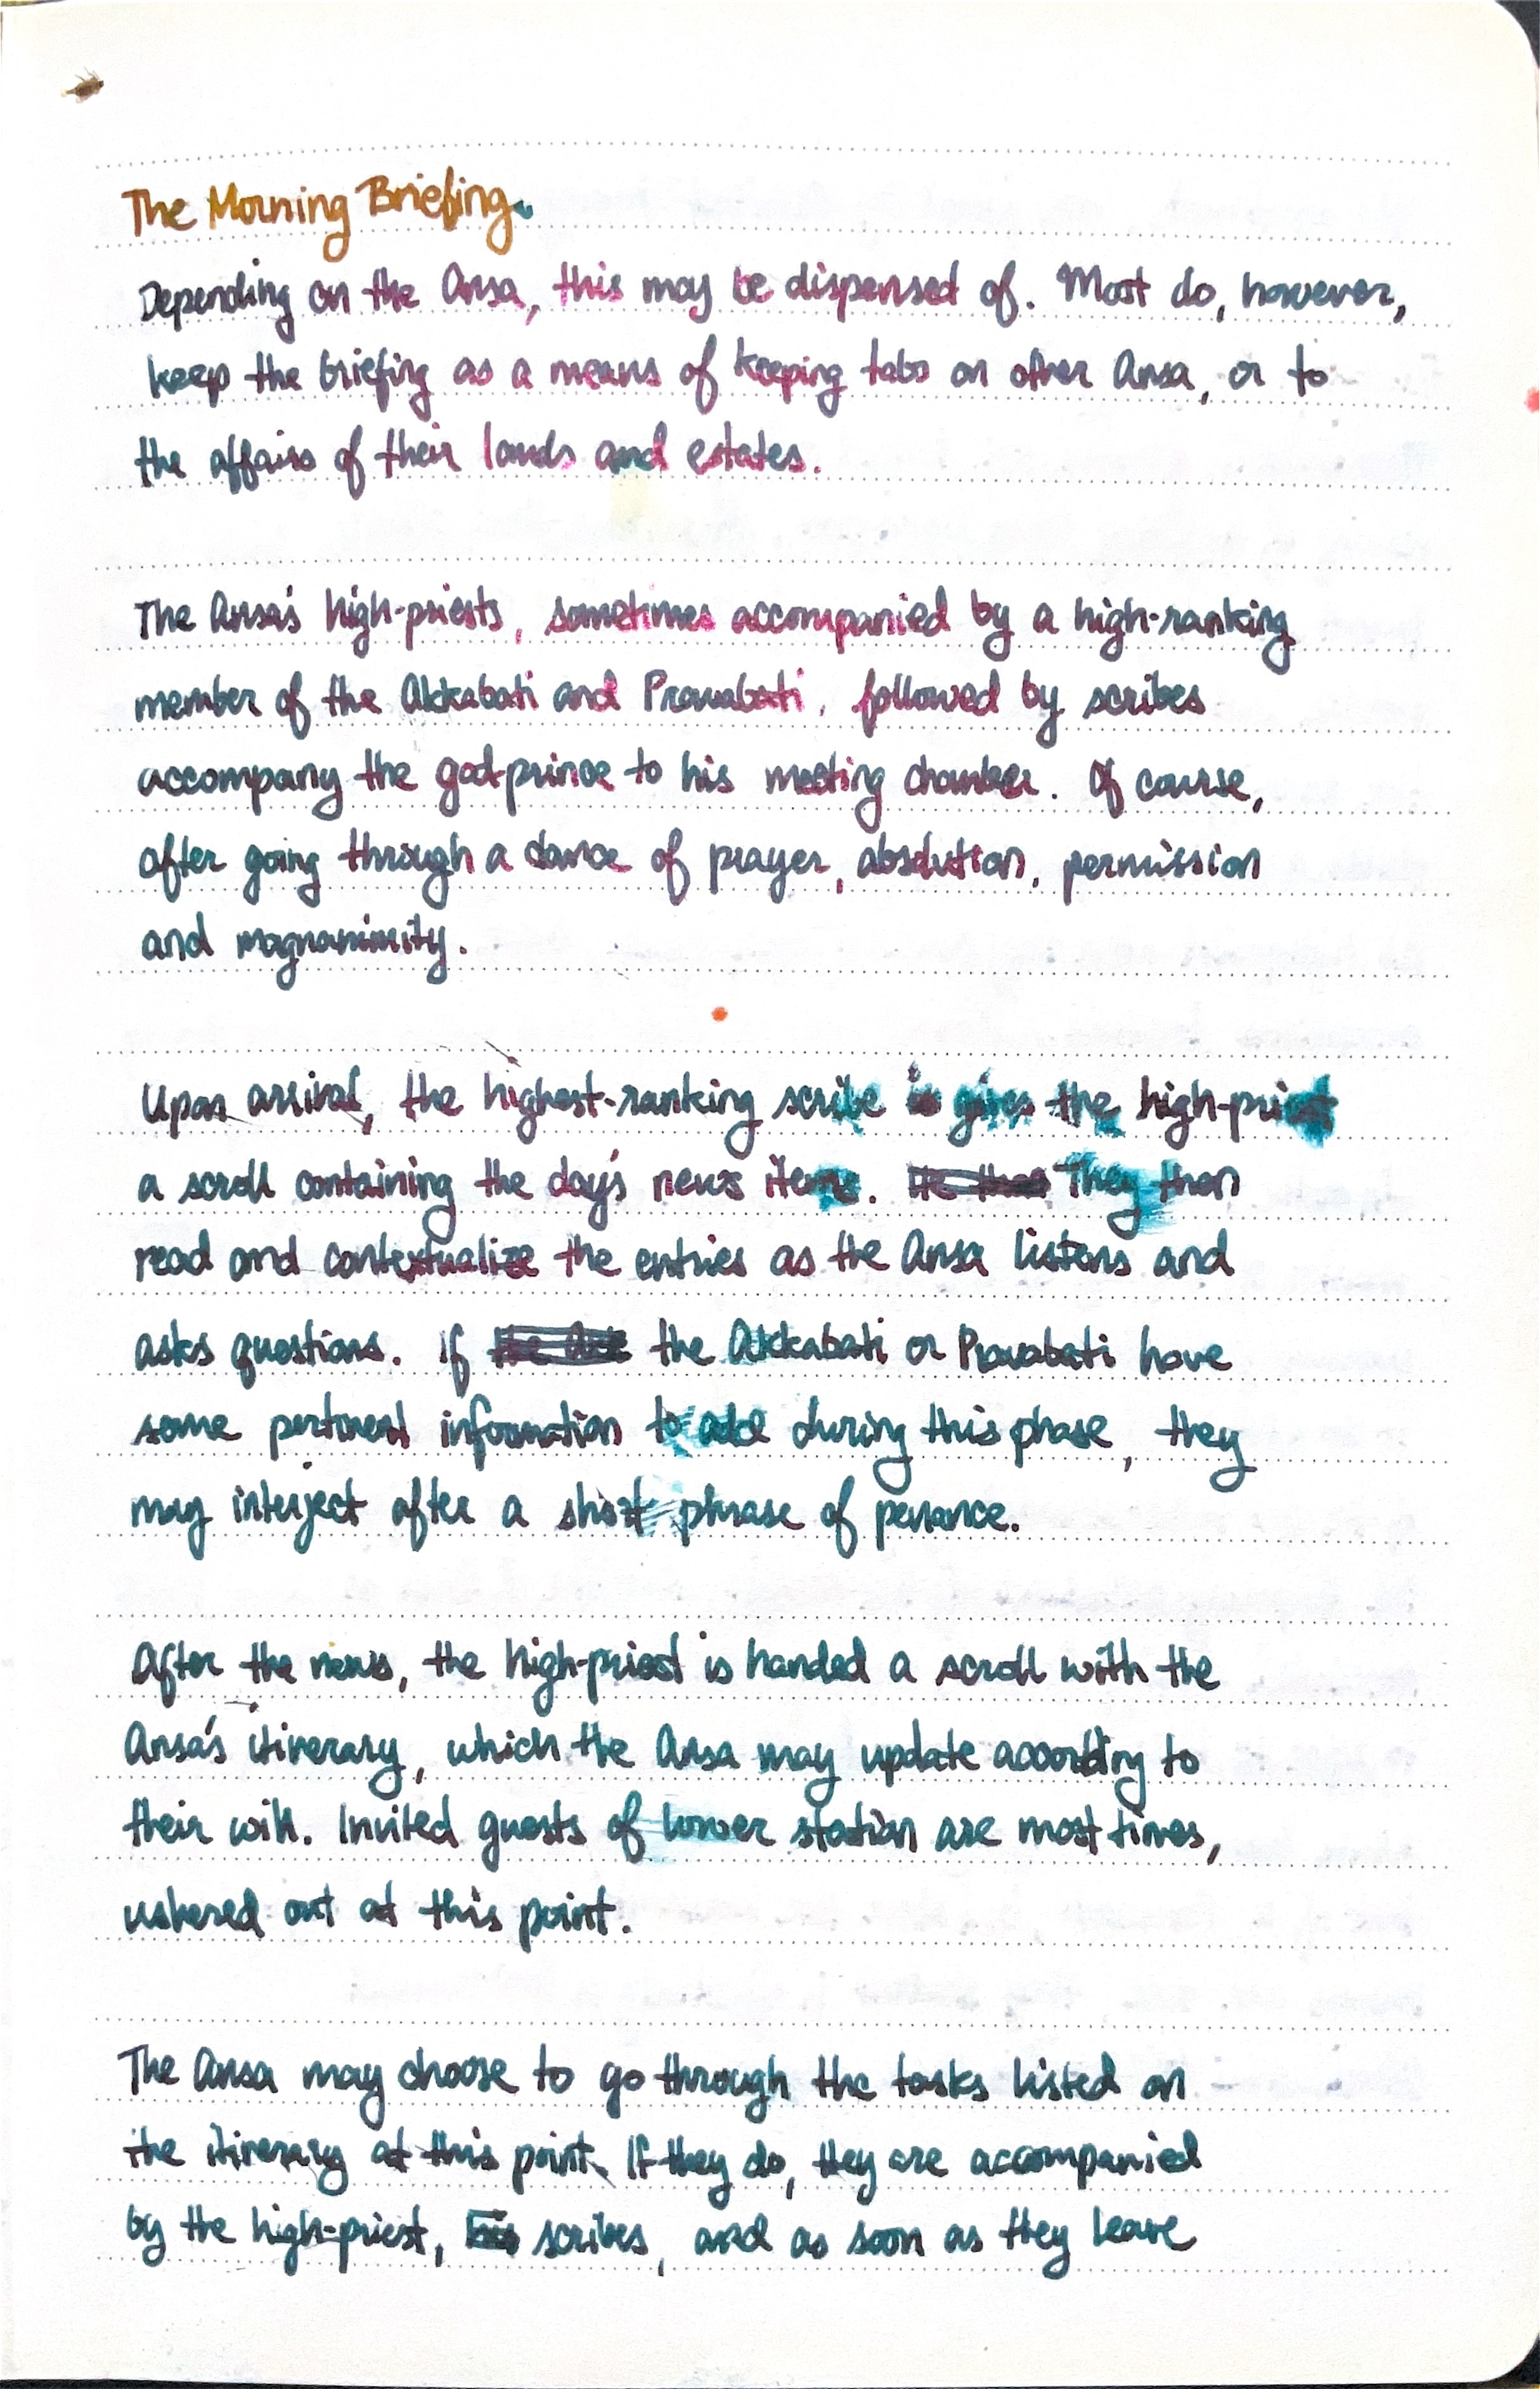 The Morning Briefing.
Depending on the Ansa, this may be dispensed of. Most do, however,
keep the briefing as a means of keeping tabs on other Ansa, or to
the affairs of their lands and estates.
The Ansa's high-priests, sometimes accompanied by a high-ranking
member of the Akkabati and Pravabati, followed by scribes
accompany the god-prince to his meeting chamber. Of course,
after going through a dance of prayer, absolution, permission
and magnanimity.
Upon arrival, the highest-ranking scribe gives the high-priest
a scroll containing the day's news items. They then
read and contextualize the entries as the Ansa listens and
asks questions. If the Akkabati or Pravabati have
some pertinent information to add during this phase, they
may interject after a short phrase of penance.
After the news, the high-priest is handed a scroll with the
Ansa's itinerary, which the Ansa may update according to
their will. Invited guests of lower station are most times,
ushered out at this point.
The Ansa may choose to go through the tasks listed on
the itinerary at this point. If they do, they are accompanied
by the high-priest, scribes, and as soon as they leave